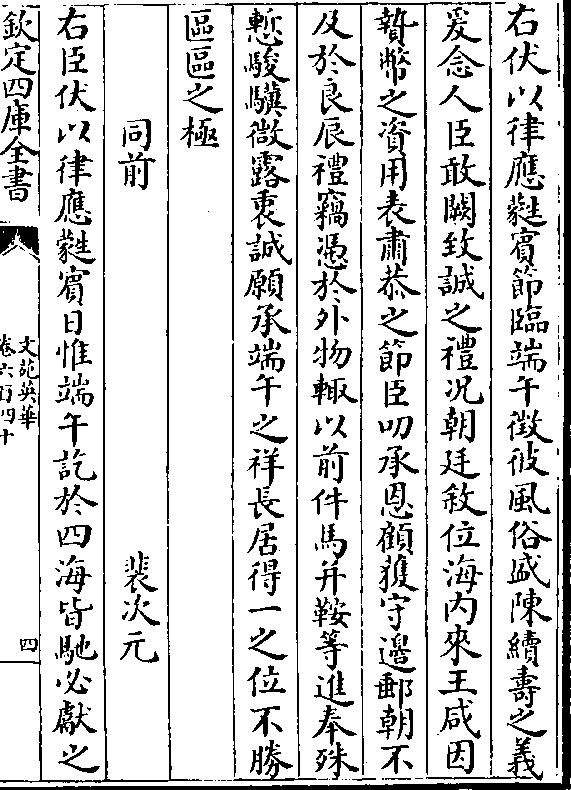 右伏以律應蕤賓節臨端午徵彼風俗盛陳續壽之義
爰念人臣敢闕致誠之禮况朝廷敘位海内來王咸因
贄幣之資用表肅恭之節臣叨承恩顧獲守邊郵朝不
及於良辰禮竊憑於外物輙以前件馬并鞍等進奉殊
慙駿驥微露衷誠願承端午之祥長居得一之位不勝
區區之極
同前 裴次元
右臣伏以律應蕤賓日惟端午訖於四海皆馳必獻之
欽定四庫全書
文苑英華
卷六百四十
四